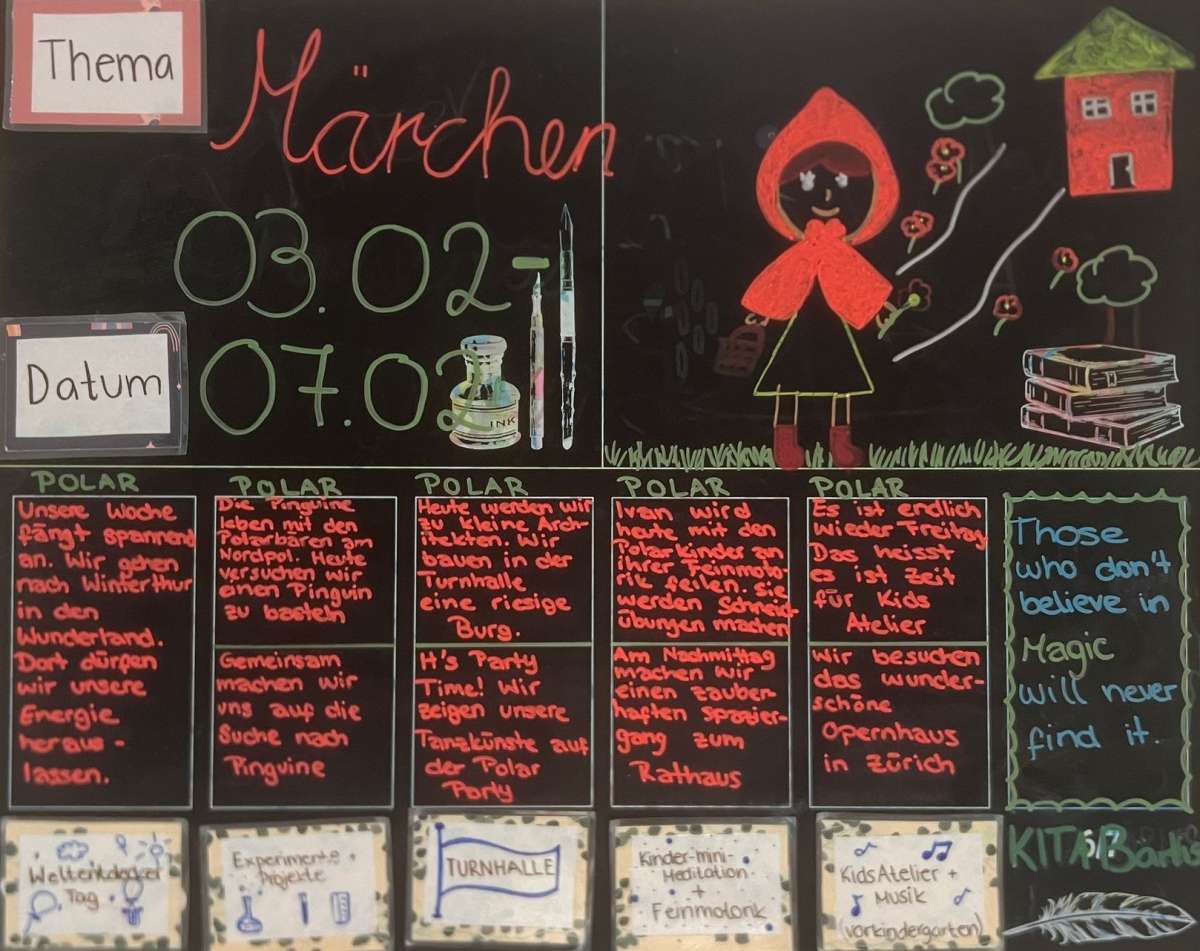 Thema
Märchen
03.02-
Datum
07.02
INK
POLAR
Unsere Woche
fängt spannend
an. Wir gehen
nach Winterthur
in den
Wunderland.
Dort dürfen
wir unsere
Energie
heraus-
lassen.
Weltentdecker
Tag
POLAR
Die Pinguine
leben mit den
Polarbären am
Nordpol. Heute
versuchen wir
einen Pinguin
zu basteln
Gemeinsam
machen wir
uns auf die
Suche nach
Pinguine
Experimente +
Projekte
POLAR
Heute werden wir
zu kleine Arch-
itekten. Wir
bauen in der
Turnhalle
eine riesige
Burg.
It's Party
Time! Wir
zeigen unsere
Tanzkünste auf
der Polar
Party
TURNHALLE
POLAR
Ivan wird
heute mit den
Polarkinder an
ihrer Feinmoto-
rik feilen. Sie
werden Schneid-
übungen machen
Am Nachmittag
machen wir
einen zauber-
haften Spazier-
gang zum
Rathaus
Kinder-mini-
Meditation
+
Feinmotorik
POLAR
Es ist endlich
wieder Freitag
Das heisst
es ist Zeit
für Kids
Atelier
Wir besuchen
das wunder-
schöne
Opernhaus
in Zürich
Kids Atelier +
Musik
(Vorkindergarten)
Those
who don't
believe in
Magic
will never
find it.
KITA